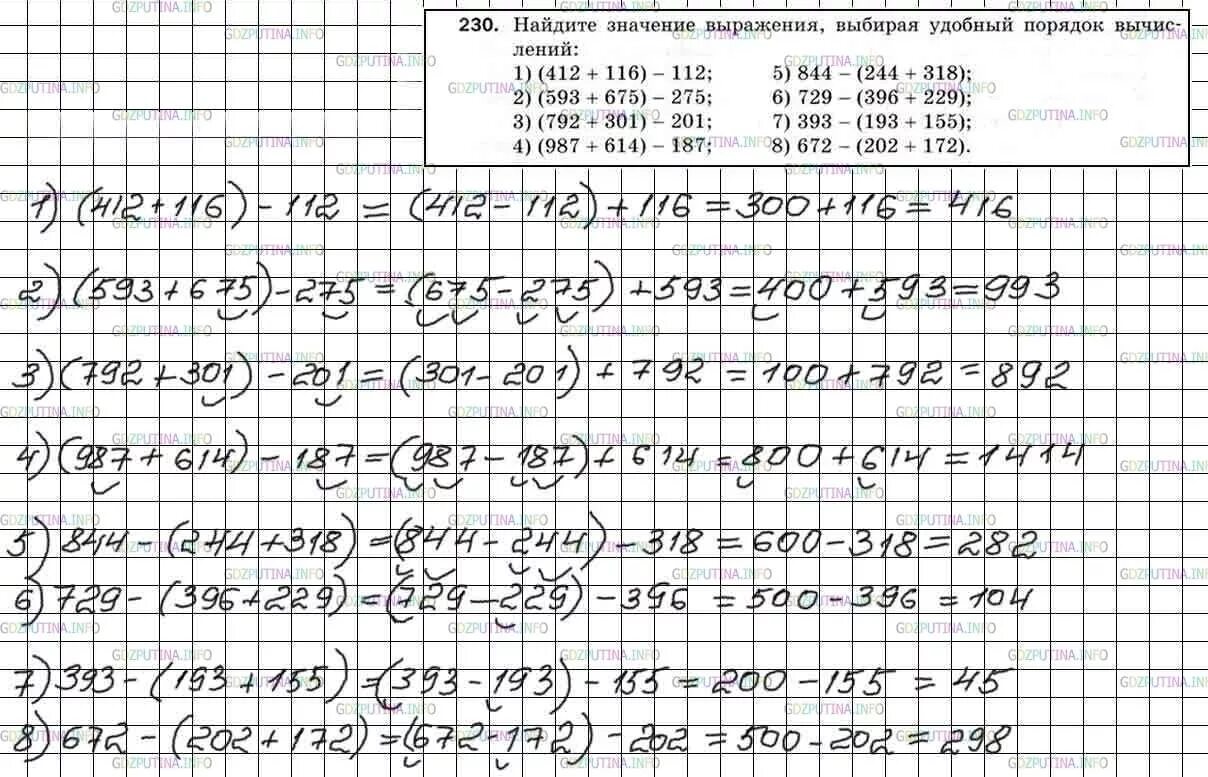 230. Найдите значение выражения, выбирая удобный порядок вычис-
лений:
1) (412 + 116) – 112; 5) 844 – (244 + 318);
2) (593 + 675) – 275; 6) 729 – (396 + 229);
3) (792 + 301) – 201; 7) 393 – (193 + 155);
4) (987 + 614) – 187; 8) 672 – (202 + 172).
1) (412+116) - 112 = (412 - 112) + 116 = 300 + 116 = 416
2) (593 + 675) - 275 = (675 - 275) + 593 = 400 + 593 = 993
3) (792 + 301) - 201 = (301 - 201) + 792 = 100 + 792 = 892
4) (987 + 614) - 187 = (987 - 187) + 614 = 800 + 614 = 1414
5) 844 - (244 + 318) = (844 - 244) - 318 = 600 - 318 = 282
6) 729 - (396 + 229) = (729 - 229) - 396 = 500 - 396 = 104
7) 393 - (193 + 155) = (393 - 193) - 155 = 200 - 155 = 45
8) 672 - (202 + 172) = (672 - 172) - 202 = 500 - 202 = 298
GDZPUTINA.INFO